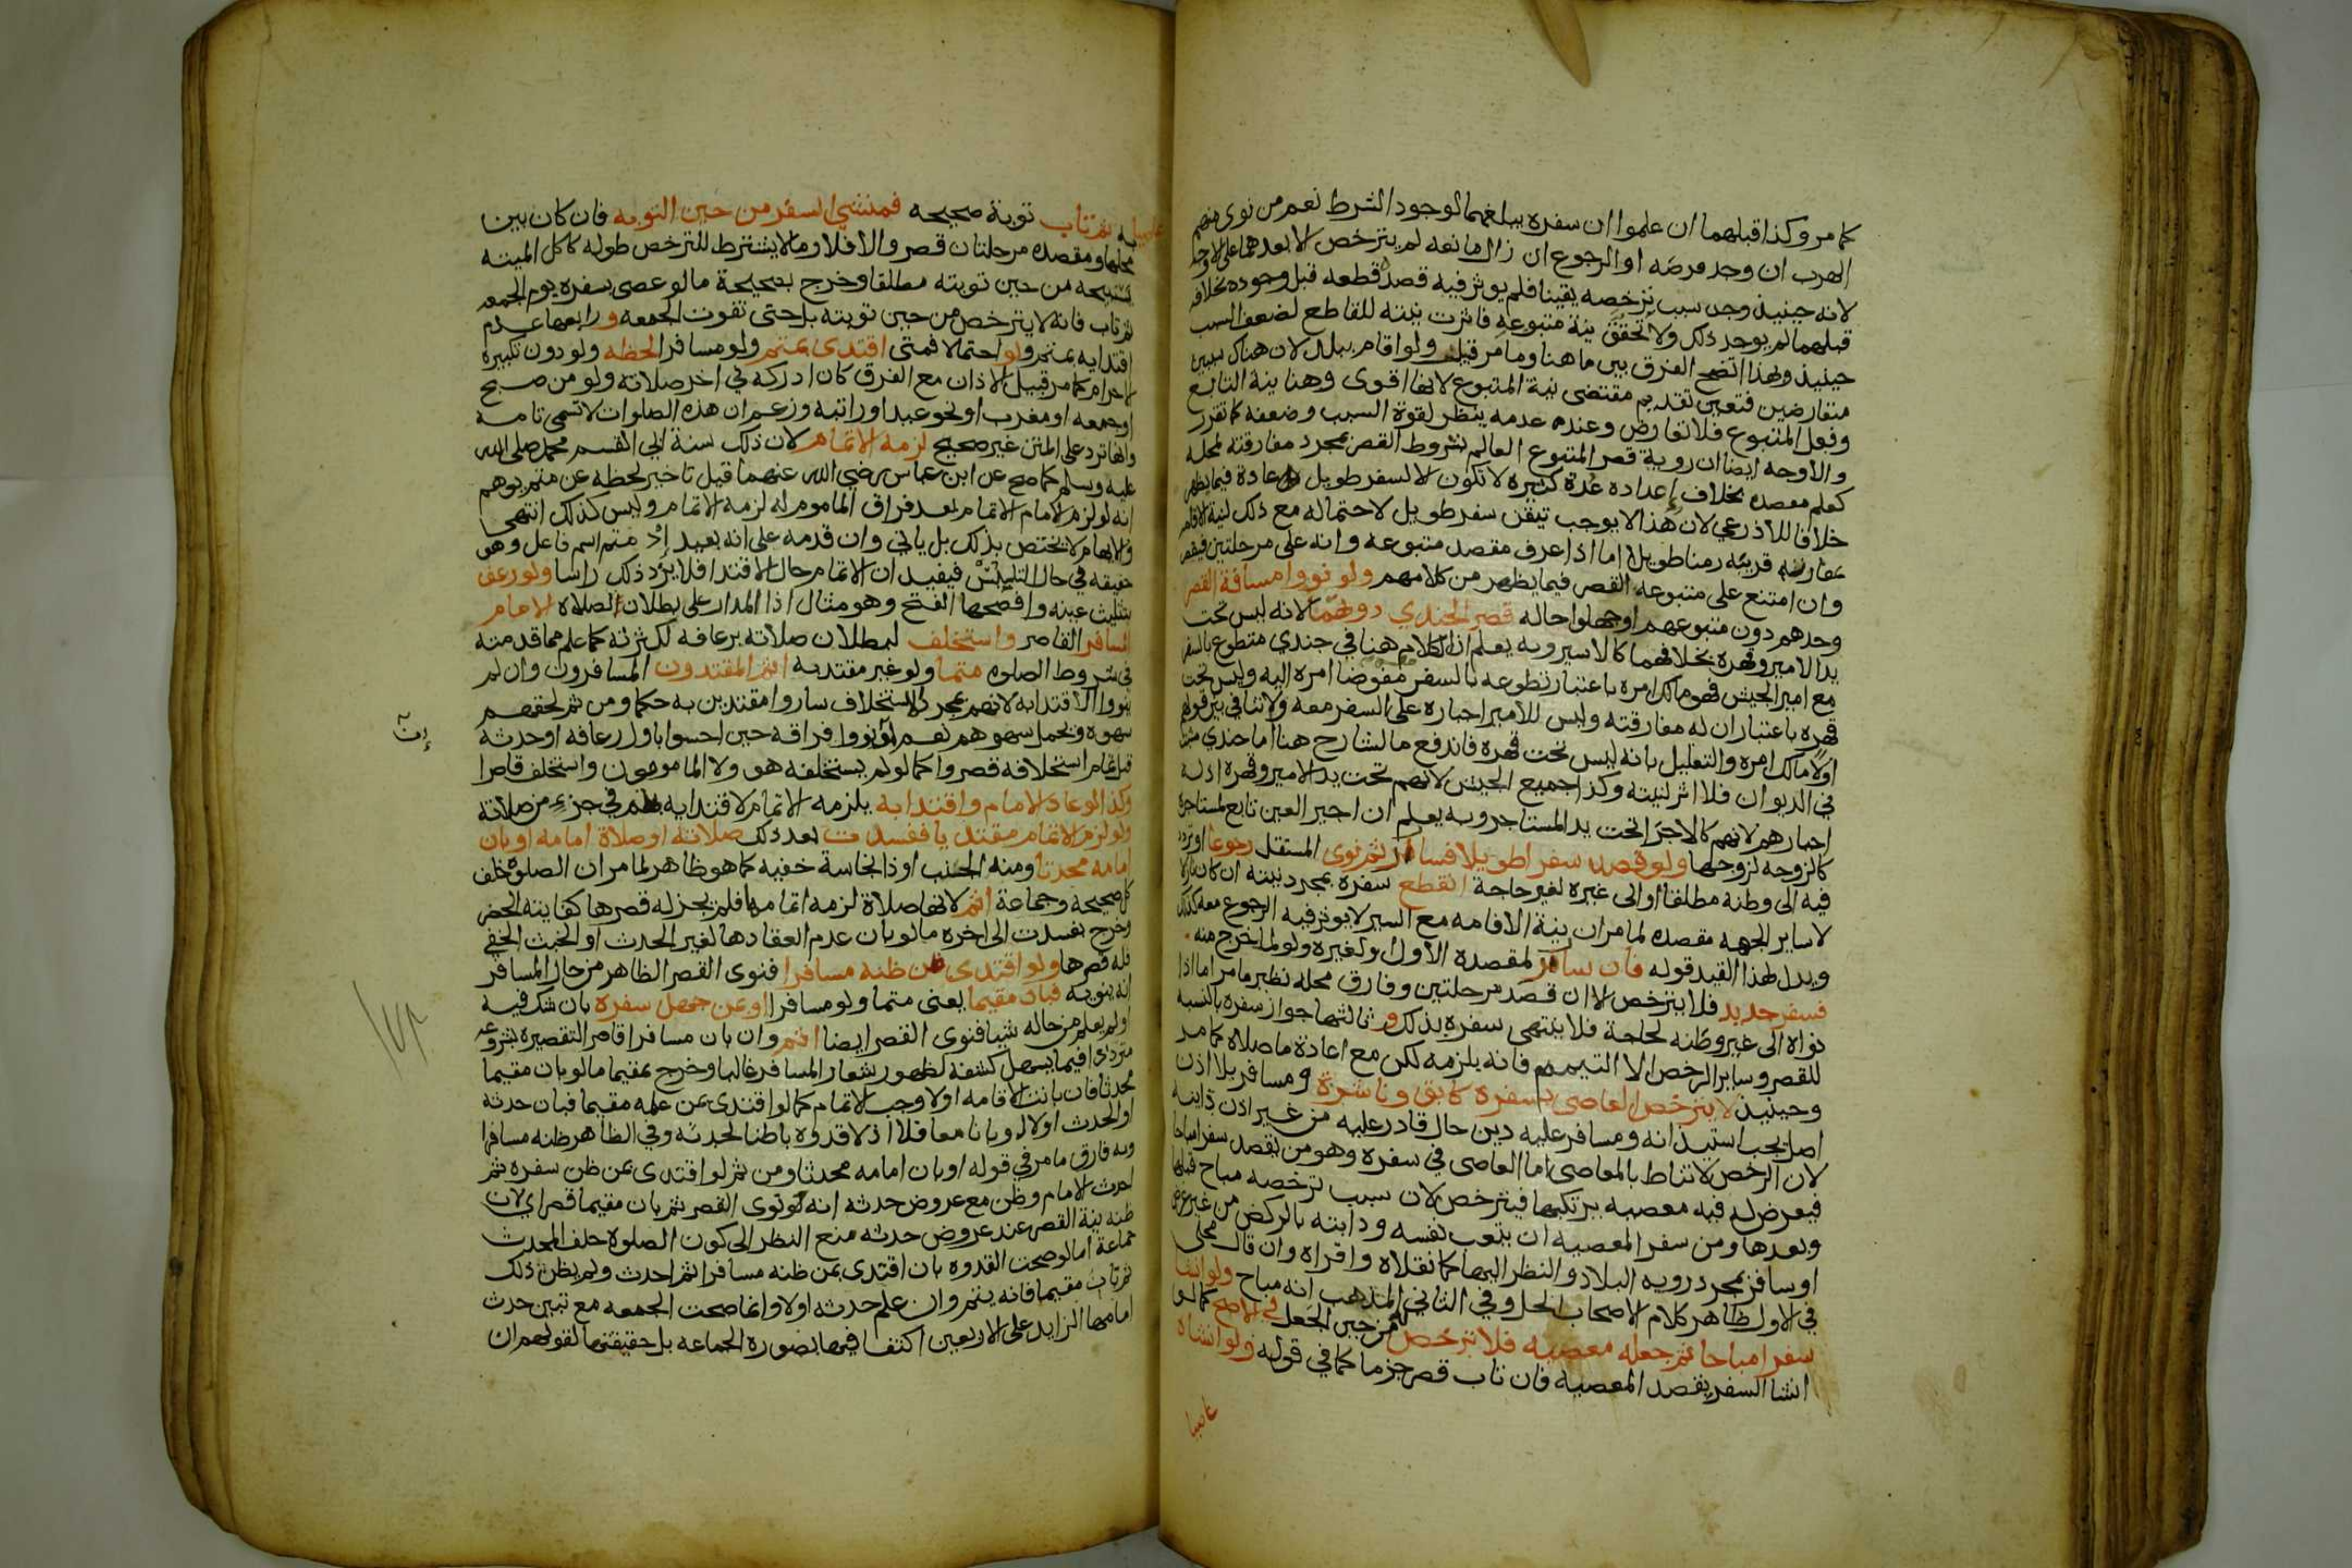 كما مر وكذا قبلهما ان علموا ان سفره يبلغهما لوجود الشرط نعم من نوى منهم
الهرب ان وجد فرصه او الرجوع ان زال مانعه لم يترخص الا بعدهما على الاوجه
لانه حينيذ وجد سبب ترخصه يقينا فلم يوثر فيه قصد قطعه قبل وجوده بخلافه
قبلهما لم يوجد ذلك ولا تحقق نية متبوعه فاثرت نيته للقاطع لضعف السبب
حينيذ وبهذا اتضح الفرق بين ما هنا وما مر قبيل ولو اقام ببلد لان هناك سببين
متعارضين فتعين تقديم مقتضى نية المتبوع لانها اقوى وهنا نية التابع
وفعل المتبوع فلا تعارض وعنده عدمه ينظر لقوة السبب وضعفه كما تقرر
والاوجه ايضا ان روية قصر المتبوع العالم بشروط القصر بمجرد مفارقته لمحله
كعلم مقصده بخلاف اعداده عدة كثيرة لا تكون الا لسفر طويل عادة فيما يظهر
خلافا للاذرعي لان هذا لا يوجب تيقن سفر طويل لاحتماله مع ذلك لنية الاقامه
بمفازه قريبه زمنا طويلا اما اذا عرف مقصد متبوعه وانه على مرحلتين فيقصر
وان امتنع على متبوعه القصر فيما يظهر من كلامهم ولو نووا مسافة القصر
وحدهم دون متبوعهم او جهلوا حاله قصر الجندي دونهما لانه ليس تحت
يد الامير وقهره بخلافهما كالاسير وبه يعلم ان الكلام هنا في جندي متطوع بالسفر
مع امير الجيش فهو مالك امره باعتبار تطوعه بالسفر مفوضا امره اليه وليس تحت
قهره باعتبار ان له مفارقته وليس للامير اجباره على السفر معه ولا تنافي بين قولهم
اولا مالك امره والتعليل بانه ليس تحت قهره فاندفع ما للشارح هنا اما جندي مثبت
في الديوان فلا اثر لنيته وكذا جميع الجيش لانهم تحت يد الامير وقهره اذ له
اجبارهم لانهم كالاجرا تحت يد المستاجر وبه يعلم ان اجير العين تابع لمستاجره
كالزوجه لزوجها ولو قصد سفرا طويلا فسافر ثم نوى المستقل رجوعا او تردد
فيه الى وطنه مطلقا او الى غيره لغير حاجة انقطع سفره بمجرد نيته ان كان نازلا
لا ساير الجهه مقصده لما مر ان نية الاقامه مع السير لا يوثر فيه الرجوع معه كذلك
ويدل لهذا القيد قوله فان سافر لمقصده الاول ولغيره ولو لما خرج منه
فسفر جديد فلا يترخص الا ان قصد مرحلتين وفارق محله نظير ما مر اما اذا
نواه الى غير وطنه لحاجة فلا ينتهي سفره بذلك وثالثها جواز سفره بالنسبه
للقصر وساير الرخص الا التيمم فانه يلزمه لكن مع اعادة ما صلاه كما مر
وحينيذ لا يترخص العاصى بسفره كابق وناشزة ومسافر بلا اذن
اصل يجب استيذانه ومسافر عليه دين حال قادر عليه من غير اذن داينه
لان الرخص لا تناط بالمعاصى اما العاصى في سفره وهو من يقصد سفرا مباحا
فيعرض له فيه معصيه يرتكبها فيترخص لان سبب ترخصه مباح قبلها
وبعدها ومن سفر المعصيه ان يتعب نفسه ودابته بالركض من غير غرض
او سافر بمجرد رويه البلاد والنظر اليها كما نقلاه واقراه وان قال مجلى
في الاول ظاهر كلام الاصحاب الحل وفي الثاني المذهب انه مباح ولو انشا
سفرا مباحا ثم جعله معصيه فلا ترخص من حين الجعل في الاصح كما لو
انشا السفر بقصد المعصيه فان تاب قصر جزما كما في قوله ولو انشاه
عاصيا
عاصيا به ثم تاب توبة صحيحه فمنشي السفر من حين التوبه فان كان بين
محلها ومقصده مرحلتان قصر والا فلا وما لا يشترط للترخص طوله كاكل الميته
يستبيحه من حين توبته مطلقا وخرج بصحيحة ما لو عصى بسفره يوم الجمعه
ثم تاب فانه لا يترخص من حين توبته بل حتى تفوت الجمعه ورابعها عدم
اقتدايه بمتم ولو احتمالا فمتى اقتدى بمتم ولو مسافرا لحظه ولو دون تكبيرة
الاحرام كما مر قبيل الاذان مع الفرق كان ادركه في اخر صلاته ولو من صبح
او جمعه او مغرب او نحو عيد او راتبه وزعم ان هذه الصلوات لا تسمى تامه
وانها ترد على المتن غير صحيح لزمه الاتمام لان ذلك سنة ابي القسم محمد صلى الله
عليه وسلم كما صح عن ابن عباس رضي الله عنهما قيل تاخير لحظه عن متم يوهم
انه لو لزم الامام الاتمام بعد فراق الماموم له لزمه الاتمام وليس كذلك انتهى
والايهام لا يختص بذلك بل ياتي وان قدمه على انه بعيد اذ متم اسم فاعل وهو
حقيقه في حال التلبس فيفيد ان الاتمام حال الاقتدا فلا يرد ذلك راسا ولو رعف
بتثليث عينه وافصحها الفتح وهو مثال اذ المدار على بطلان الصلاه الامام
المسافر القاصر واستخلف لبطلان صلاته برعافه لكثرته كما علم مما قدمته
في شروط الصلوه متما ولو غير مقتد به اتم المقتدون المسافرون وان لم
ينووا الاقتدا به لانهم بمجرد الاستخلاف ساروا مقتدين به حكما ومن ثم لحقهم
سهوه وتحمل سهوهم نعم لو نووا فراقه حين احسوا باول رعافه او حدثه
قبل تمام استخلافه قصروا كما لو لم يستخلفه هو ولا المامومون واستخلف قاصرا
وكذا لو عاد الامام واقتدا به يلزمه الاتمام لاقتدايه بمتم في جزء من صلاته
ولو لزم الاتمام مقتديا ففسدت بعد ذلك صلاته او صلاة امامه او بان
امامه محدثا ومنه الجنب او ذا نجاسة خفيه كما هو ظاهر لما مر ان الصلوه خلف
كل صحيحة وجماعة اتم لانها صلاة لزمه اتمامها فلم يجز له قصرها كفايته الحضر
وخرج بفسدت الى اخره ما لو بان عدم انعقادها لغير الحدث او الخبث الخفي
فله قصرها ولو اقتدى بمن ظنه مسافرا فنوى القصر الظاهر من حال المسافر
انه ينويه فبان مقيما يعنى متما ولو مسافرا او بمن جهل سفره بان شك فيه
او لم يعلم من حاله شيا فنوى القصر ايضا اتم وان بان مسافرا قاصرا لتقصيره بشروعه
مترددا فيما يسهل كشفه لظهور شعار المسافر غالبا وخرج بمقيما ما لو بان مقيما
محدثا فان بانت الاقامه اولا وجب الاتمام كما لو اقتدى بمن علمه مقيما فبان حدثه
او الحدث اولا او بانا معا فلا اذ لا قدوه باطنا لحدثه وفي الظاهر ظنه مسافرا
وبه فارق ما مر في قوله او بان امامه محدثا ومن ثم لو اقتدى بمن ظن سفره ثم
احدث الامام وظن مع عروض حدثه انه نوى القصر ثم بان مقيما قصر اي لان
ظنه نية القصر عند عروض حدثه منع النظر الى كون الصلوة خلف المحدث
جماعة اما لو صحت القدوه بان اقتدى بمن ظنه مسافرا ثم احدث ولم يظن ذلك
ثم بان مقيما فانه يتم وان علم حدثه اولا وانما صحت الجمعه مع تبين حدث
امامها الزايد على الاربعين اكتفا فيها بصورة الجماعه بل حقيقتها لقولهم ان